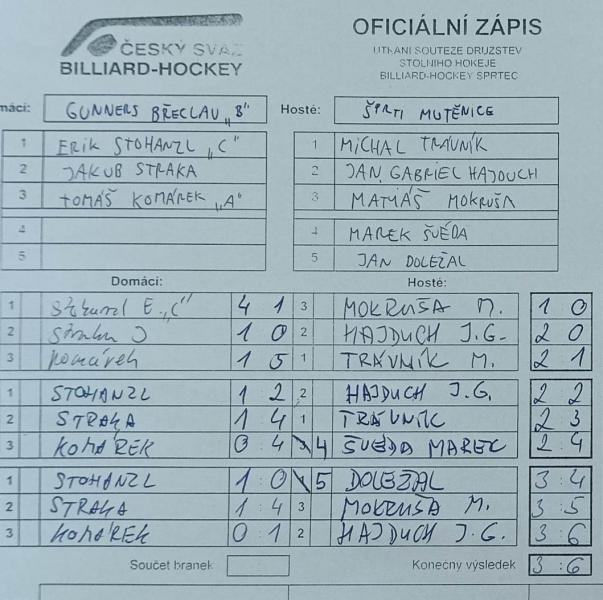 ČESKÝ SVAZ
BILLIARD-HOCKEY
OFICIÁLNÍ ZÁPIS
UTKÁNÍ SOUTĚŽE DRUŽSTEV
STOLNÍHO HOKEJE
BILLIARD-HOCKEY SPRTEC
mácí: GUNNERS BŘECLAV „B" Hosté: ŠPRTI MUTĚNICE
1 ERIK STOHANZL „C" 1 MICHAL TRÁVNÍK
2 JAKUB STRAKA 2 JAN GABRIEL HAJDUCH
3 TOMÁŠ KOMÁREK „A" 3 MATIÁŠ MOKRUŠA
4 4 MAREK ŠVÉDA
5 5 JAN DOLEŽAL
Domácí: Hosté:
1 E. „C" 4 1 3 MOKRUŠA M. 1 0
2 Straka J 1 0 2 HAJDUCH J.G. 2 0
3 Komárek 1 5 1 TRÁVNÍK M. 2 1
1 STOHANZL 1 : 2 2 HAJDUCH J.G. 2 : 2
2 STRAKA 1 : 4 1 TRÁVNÍK 2 : 3
3 KOMÁREK 0 : 4 4 ŠVÉDA MAREK 2 : 4
1 STOHANZL 1 : 0 5 DOLEŽAL 3 : 4
2 STRAKA 1 : 4 3 MOKRUŠA M. 3 : 5
3 KOMÁREK 0 1 2 HAJDUCH J.G. 3 : 6
Součet branek Konečný výsledek 3 : 6